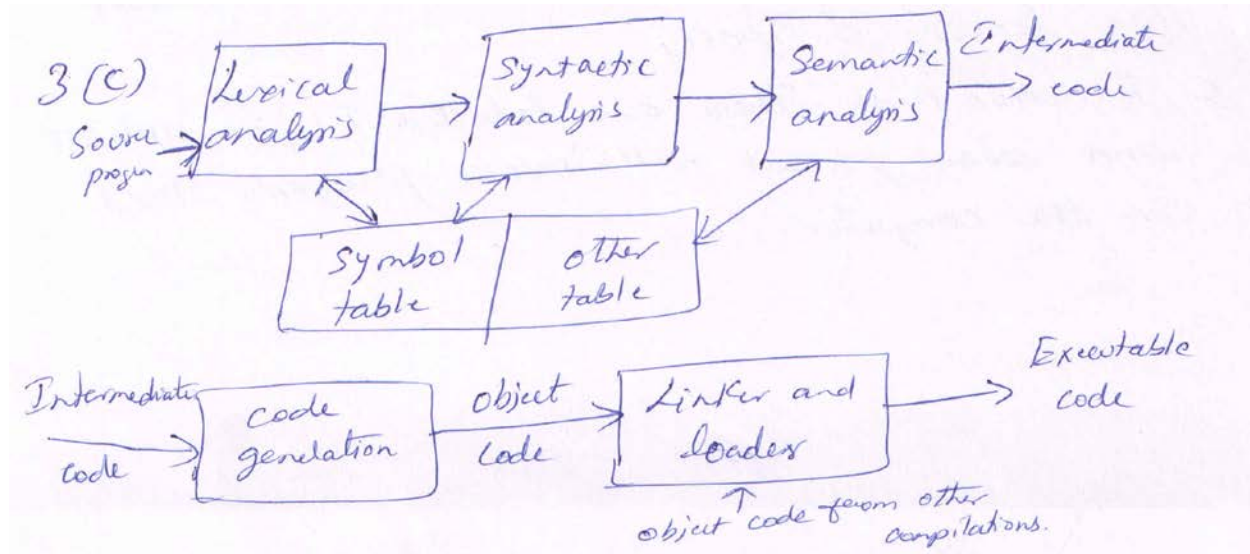 3 (C)
Source
progrn
Lexical
analysis
Syntactic
analysis
Semantic
analysis
Intermediate
code
Symbol
table
other
table
Intermediate
code
code
genelation
object
code
Linker and
loader
Executable
code
object code from other
compilations.